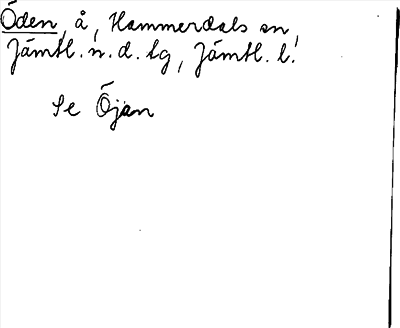 Öden, å, Hammerdals sn,
Jämtl. n. d. tg, Jämtl. l.
Se Öjan